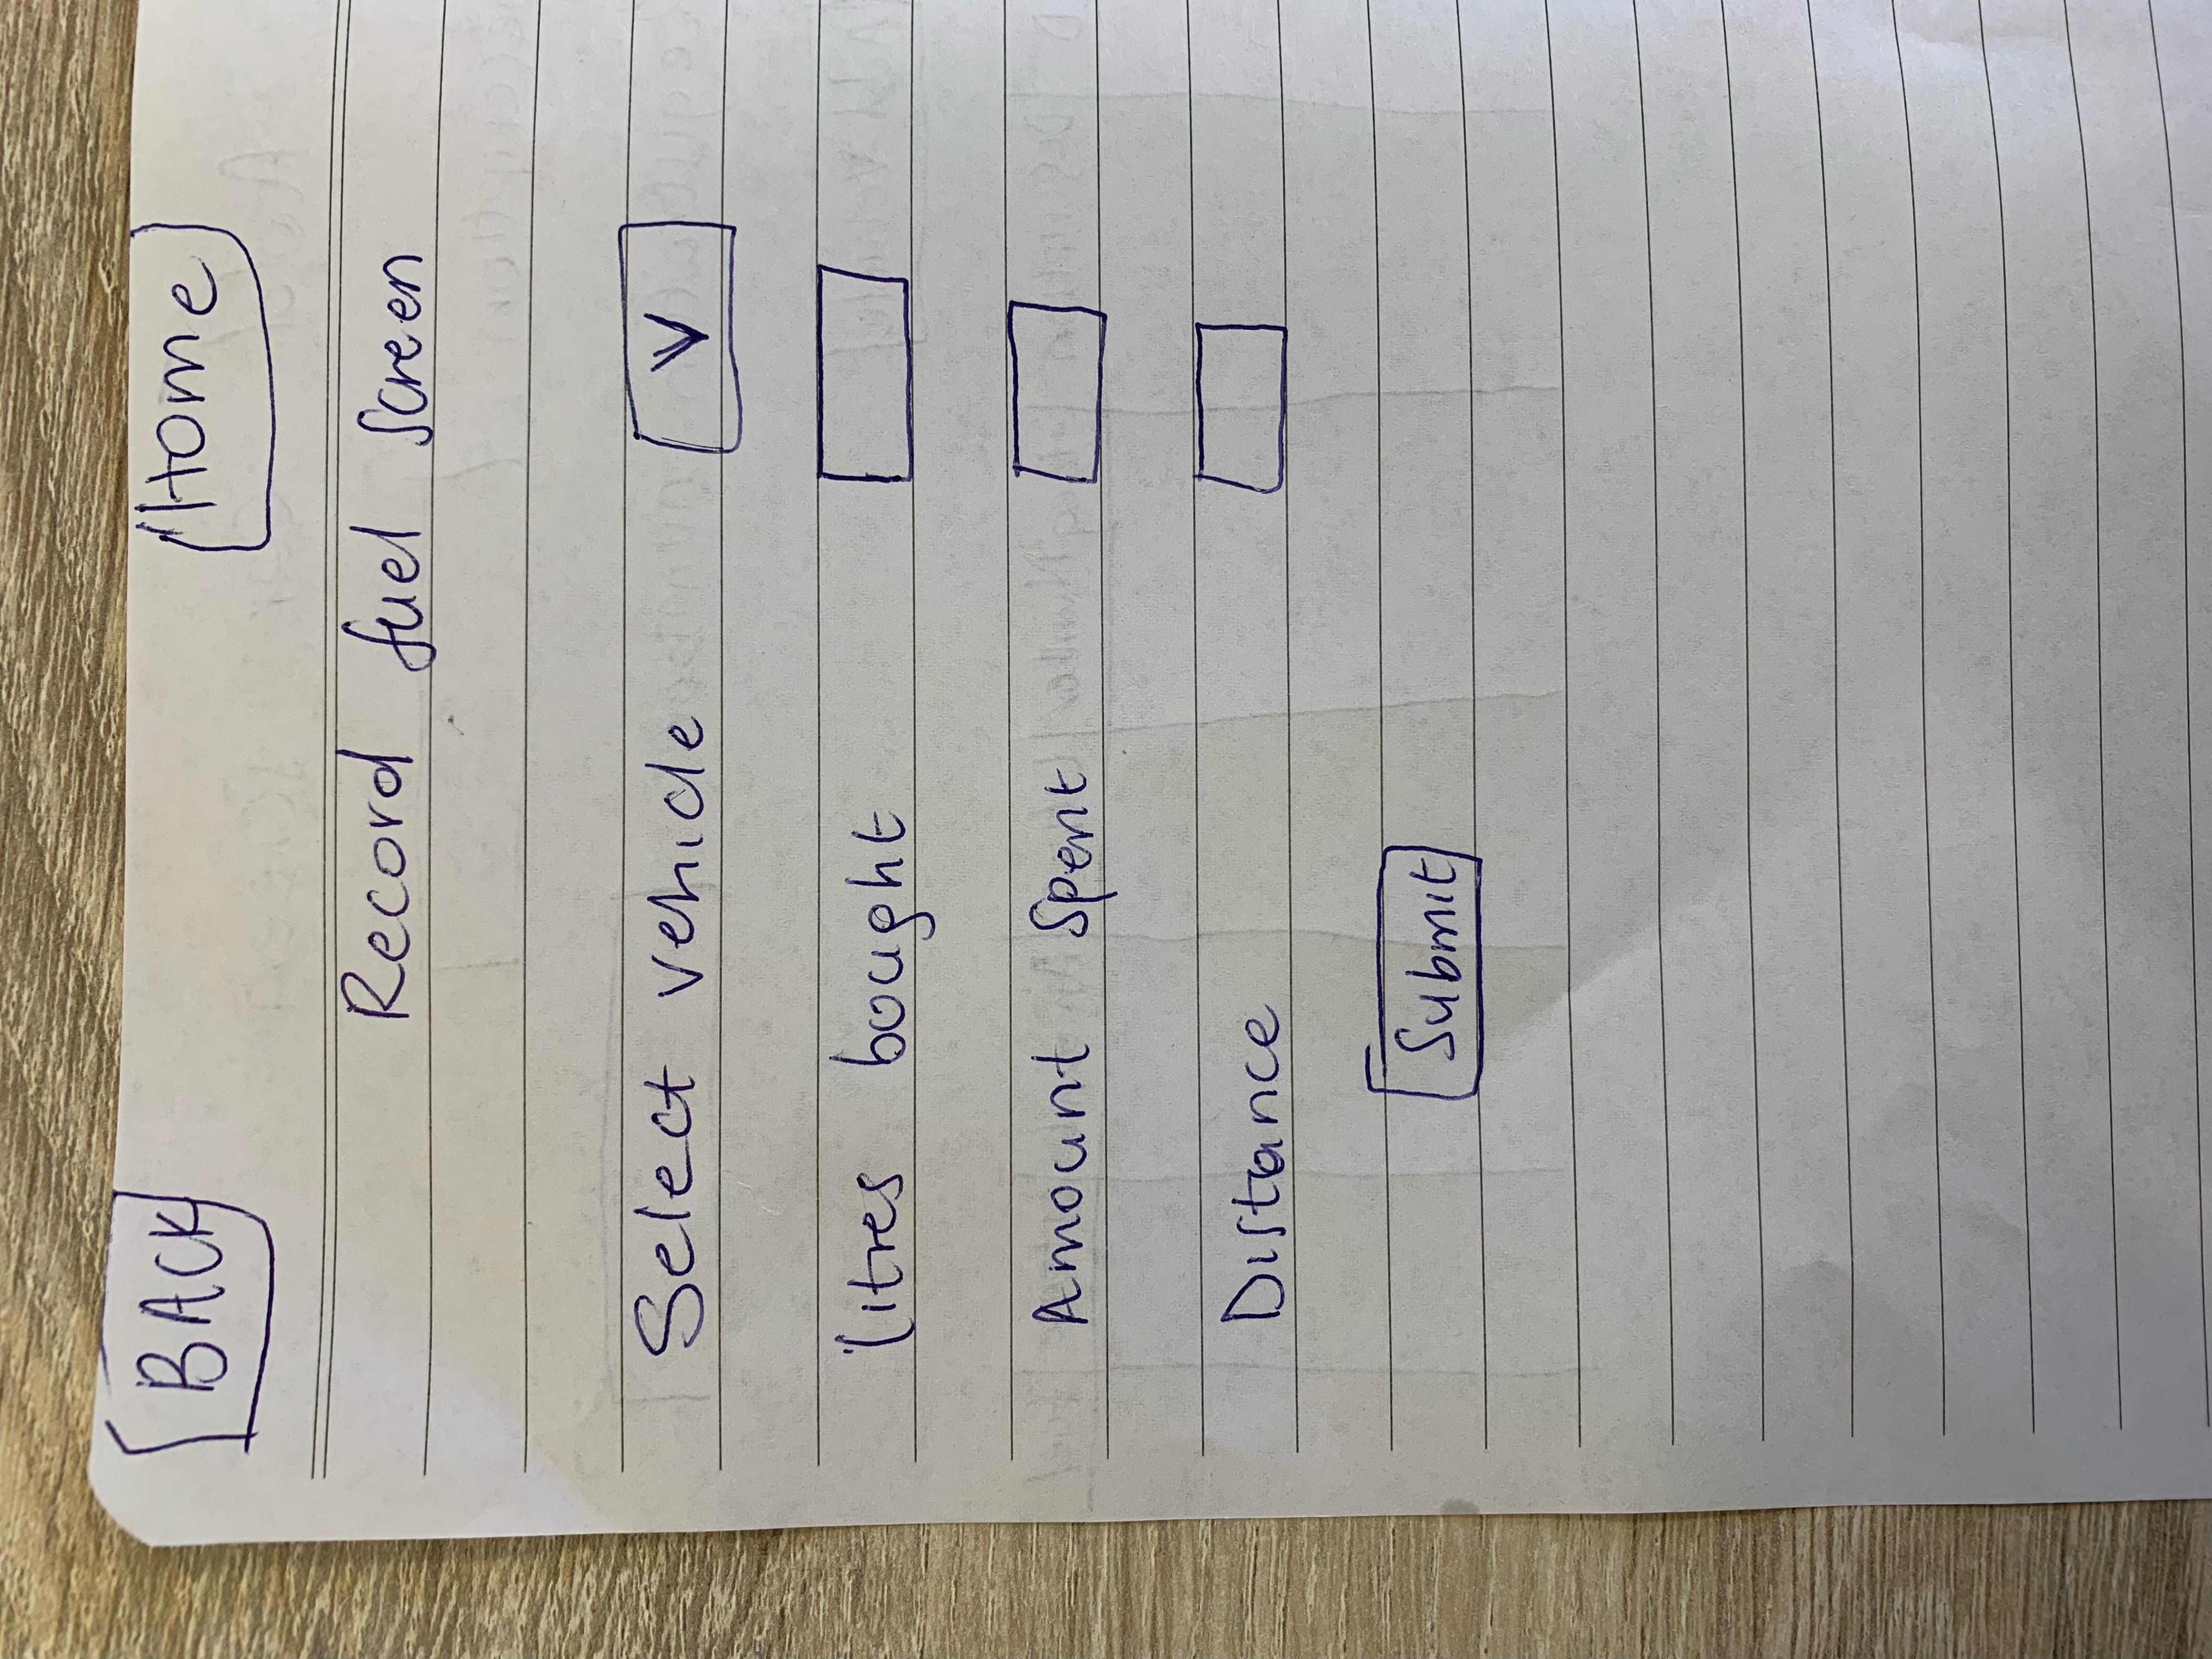 BACK Home
Record fuel screen
Select vehicle V
litres bought
Amount Spent
Distance
Submit